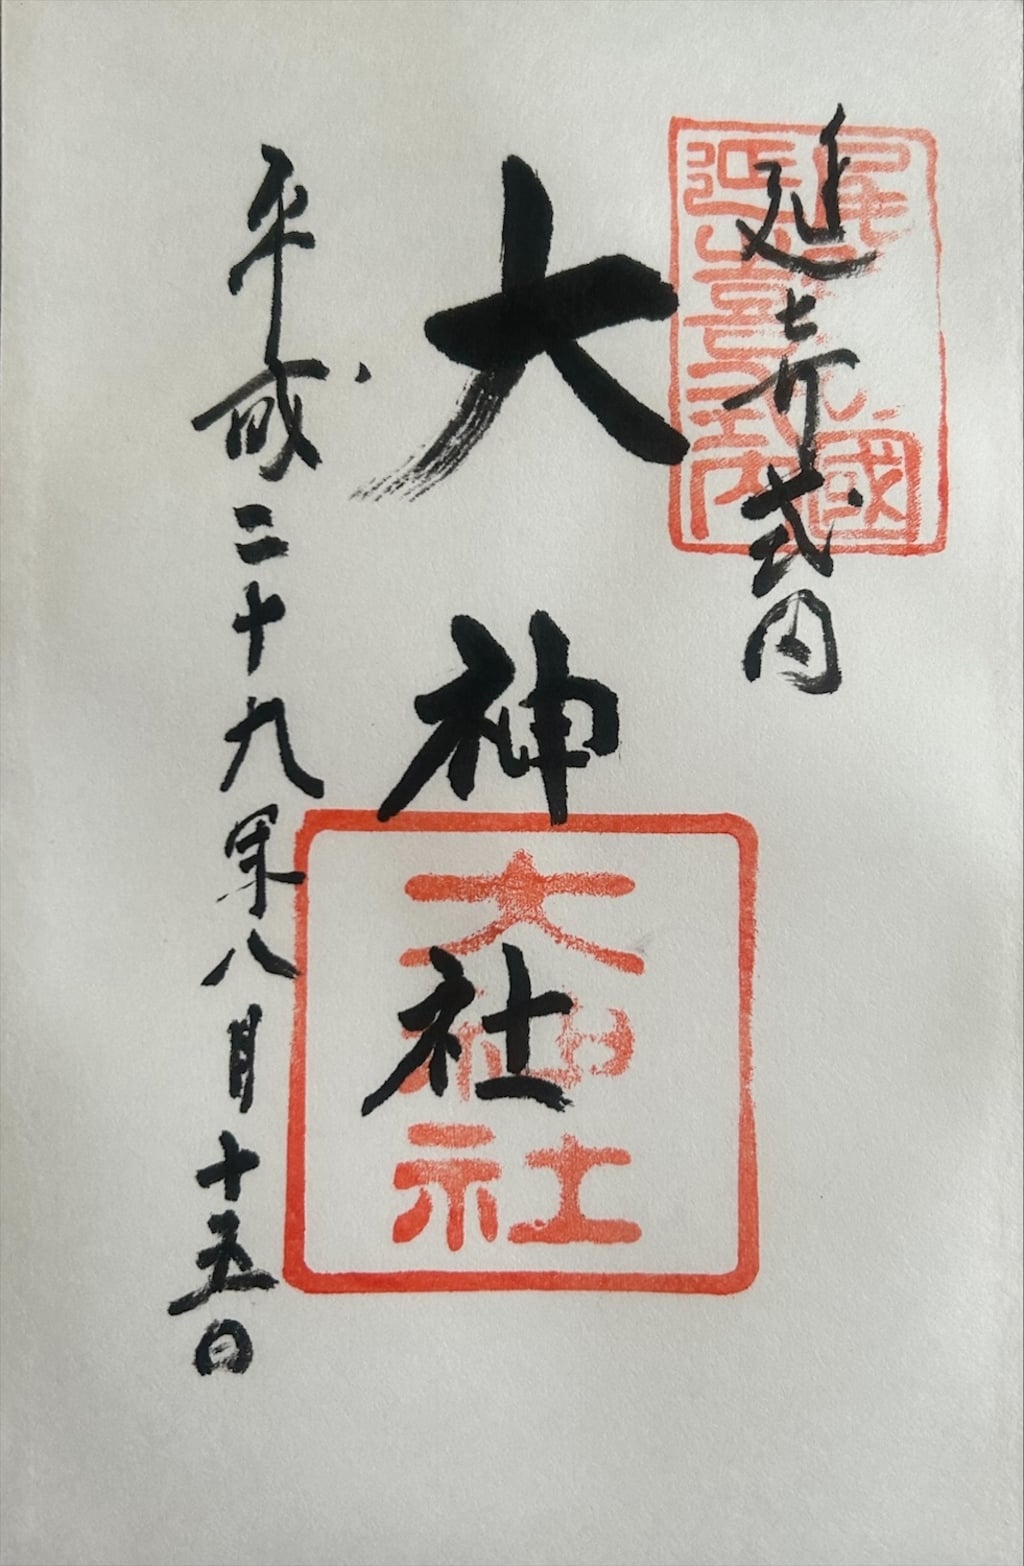 延㐂式内
尾張國
延喜式内
大神社
大神社
平成二十九年八月十五日